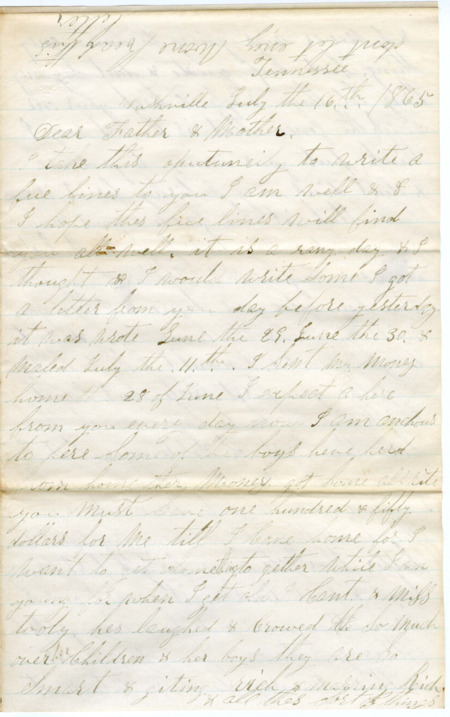 dont let any Person Read this
letter
Tennessee
Nashville July the 16.th 1865
Dear Father & Mother.
I take this opertuneity to write a
fue lines to you I am well & &
I hope thes fue lines will find
you all well. it is a rany day & I
thought & I would write some I got
a letter from you day before yesterday
it was wrote June the 29. June the 30. &
maled July the 11.th. I sent my money
home 28 of June I expect a here
from you every day now I am anchous
to here some of the boys heve herd
from home ther Money got home all rite
you must save one hundred & fifty
dollars for Me till I Come home for I
want to get to gether while I am
young for when I get old I Cant & Miss
tooly hes laughed & Crowed so much
over Children & her boys they are so
Smart & giting rich & marrying Rich
& all thes sort of things